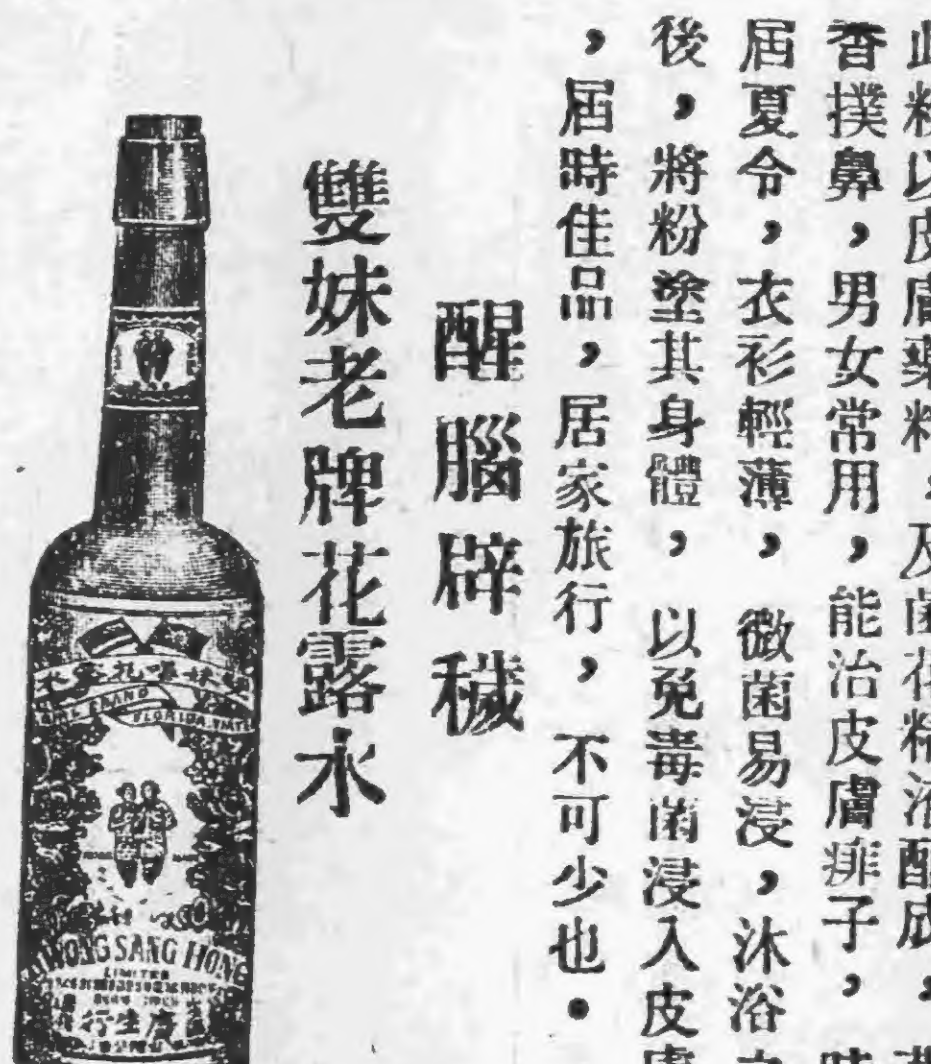 此粉以皮膚藥料,及菌花精液醋成,
香撲鼻,男女常用,能治皮膚痱子,
屆夏令,衣衫輕薄,微菌易浸,沐浴之
後,將粉塗其身體,以免毒菌浸入皮膚
,屆時佳品,居家旅行,不可少也。
醒腦辟穢
雙妹老牌花露水
BRAND
FLORIDA WATER
KWONG SANG HONG
LIMITED
廣生行